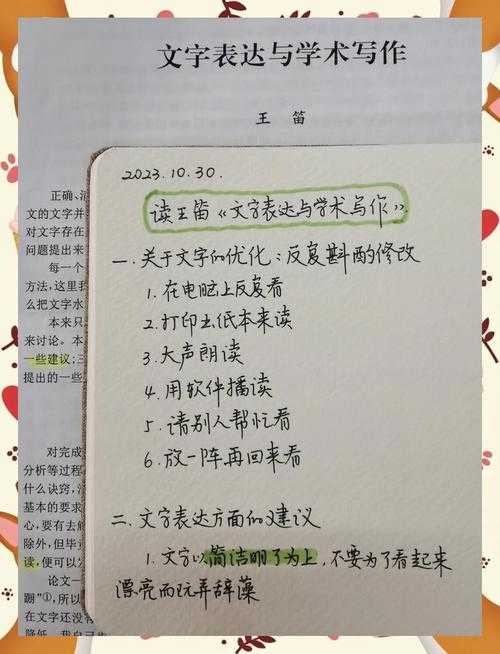 文字表达与学术写作
王 笛
正确、清
文的文字并
对文字存在
问题提出来
每一个
方法,这里我
么把文字水
本来只
来讨论。本
一些建议;三
提出的一些
对完成
分析等过程
什么诀窍,
基本的要求
心,要有去
除外,但毕
读,便可以
论文一
题"①,所以
在文字还没
降低。我自己
2023.10.30.
读王笛《文字表达与学术写作》.
一.关于文字的优化:反复斟酌修改
1.在电脑上反复看
2.打印出纸本来读
3.大声朗读
4.用软件播读
5.请别人帮忙看
6.放一阵再回来看
二.文字表达方面的建议
1.文字以简洁明了为上,不要为了看起来
漂亮而玩弄辞藻